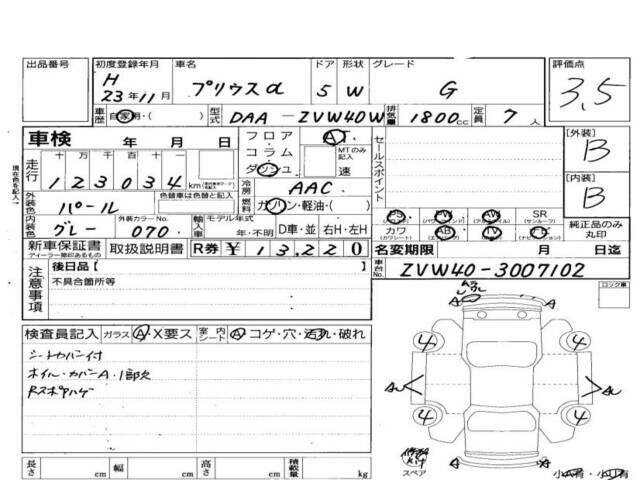 出品番号 初度登録年月 車名 ドア 形状 グレード 評価点
H 23年11月 プリウスα 5 W G 3,5
車歴 自家用・( ) 型式 DAA-ZVW40W 排気量 1800cc 定員 7人
車検 年 月 日
フロア・コラム・ダッシュ AT. MTのみ記入 速
セールスポイント
[外装] B
[内装] B
走行 十 万 千 百 十
123034 km
冷房 AAC
燃料 ガソリン・軽油・( )
外装色 パール 色替車は色替と記入
内装色 グレー 外装カラーNo. 070
輸入車 モデル年式 年・不明 D車・並 右H・左H
PS PW AW SR
(パワステ) (サンルーフ)
カワ AB TV
(カワシート)
純正品のみ丸印
新車保証書 取扱説明書 R券 ¥13,220
名変期限 月 日迄
車台No. ZVW40-3007102
現在色を記入
注意事項 後日品[ ]
不具合箇所等
ロック車
検査員記入 ガラス A・X要ス 室内シート A・コゲ・穴・汚れ・破れ
シートカバー付
ホイル・カバーA・1部欠
Rスポアハゲ
4 4
4 4
スペア
長さ cm 幅 cm 高さ cm 積載量 kg